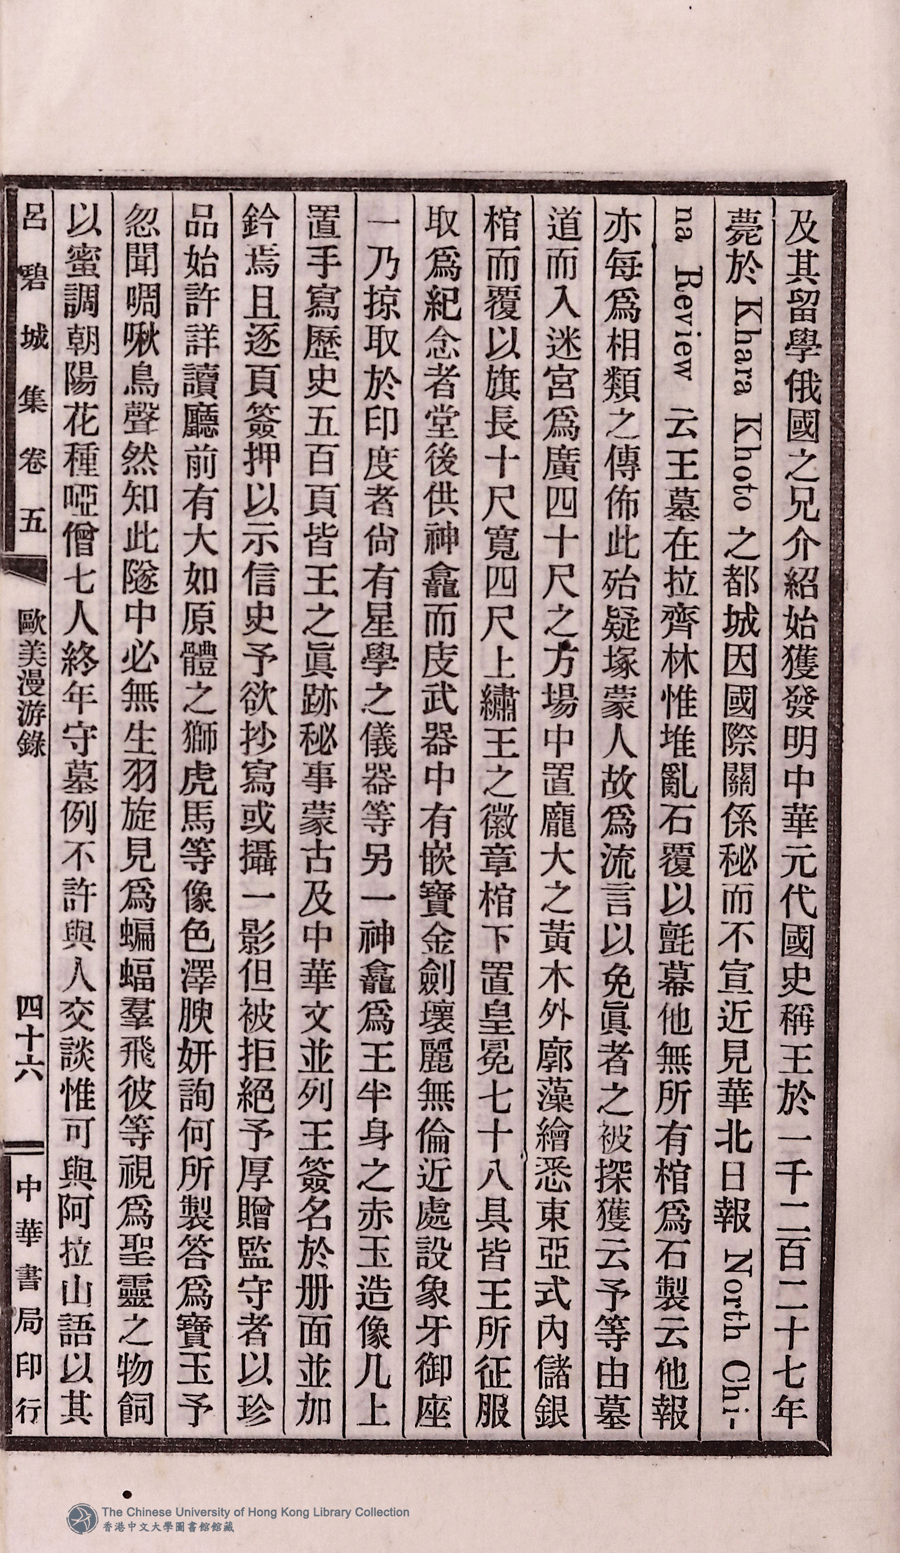 及其留學俄國之兄介紹始獲發明中華元代國史稱王於一千二百二十七年
薨於 Khara Khoto 之都城因國際關係秘而不宣近見華北日報 North Chi-
na Review 云王墓在拉齊林惟堆亂石覆以氈幕他無所有棺爲石製云他報
亦每爲相類之傳佈此殆疑塚蒙人故爲流言以免眞者之被探獲云予等由墓
道而入迷宮爲廣四十尺之方場中置龐大之黃木外廓藻繪悉東亞式內儲銀
棺而覆以旗長十尺寬四尺上繡王之徽章棺下置皇冕七十八具皆王所征服
取爲紀念者堂後供神龕而庋武器中有嵌寶金劍壞麗無倫近處設象牙御座
一乃掠取於印度者尙有星學之儀器等另一神龕爲王半身之赤玉造像几上
置手寫歷史五百頁皆王之眞跡秘事蒙古及中華文並列王簽名於册面並加
鈐焉且逐頁簽押以示信史予欲抄寫或攝一影但被拒絕予厚贈監守者以珍
品始許詳讀廳前有大如原體之獅虎馬等像色澤腴妍詢何所製答爲寶玉予
忽聞啁啾鳥聲然知此隧中必無生羽旋見爲蝙蝠羣飛彼等視爲聖靈之物飼
以蜜調朝陽花種啞僧七人終年守墓例不許與人交談惟可與阿拉山語以其
呂碧城集卷五 歐美漫游錄 四十六 中華書局印行
The Chinese University of Hong Kong Library Collection
香港中文大學圖書館館藏